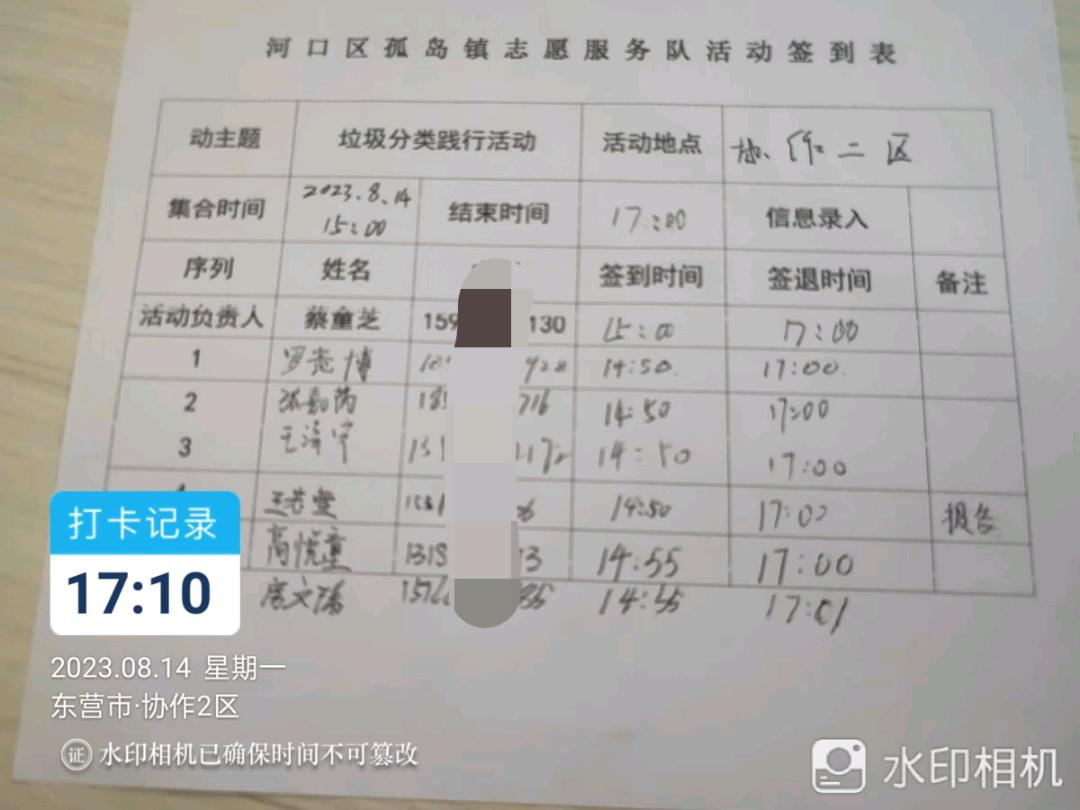 河口区孤岛镇志愿服务队活动签到表
动主题 垃圾分类践行活动 活动地点 协作二区
集合时间 2023.8.14 15:00 结束时间 17:00 信息录入
序列 姓名 签到时间 签退时间 备注
活动负责人 蔡童芝 159 130 15:00 17:00
1 罗 博 928 14:50 17:00
2 716 14:50 17:00
3 王泽宇 14:50 17:00
14:50 17:00 报告
高悦童 1315 3 14:55 17:00
1576 14:55 17:01
打卡记录
17:10
2023.08.14 星期一
东营市·协作2区
证 水印相机已确保时间不可篡改
水印相机